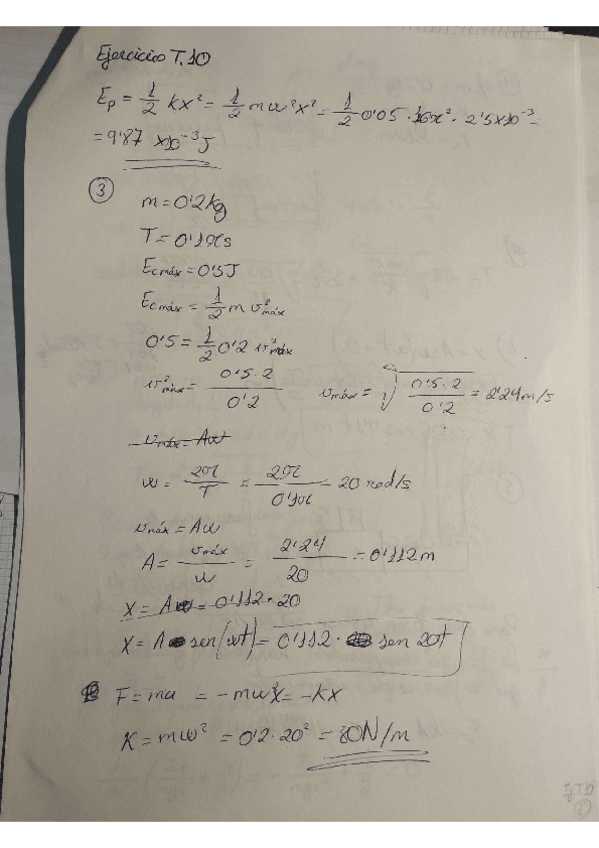 Ejercicios T.10
Ep = 1/2 kx² = 1/2 mω²x² = 1/2 0'05 · 16π² · 2'5x10⁻³ =
= 9'87 x10⁻³ J
③
m = 0'2kg
T = 0'1π s
Ecmáx = 0'5J
Ecmáx = 1/2 m v²máx
0'5 = 1/2 0'2 v²máx
v²máx = 0'5·2 / 0'2    vmáx = √(0'5·2 / 0'2) = 2'24 m/s
vmáx = Aω
ω = 2π/T = 2π/0'1π = 20 rad/s
vmáx = Aω
A = vmáx/ω = 2'24/20 = 0'112 m
X = Aω = 0'112 · 20
X = A sen(ωt) = 0'112 · sen 20t
F = ma = -mω²x = -kx
K = mω² = 0'2 · 20² = 80N/m